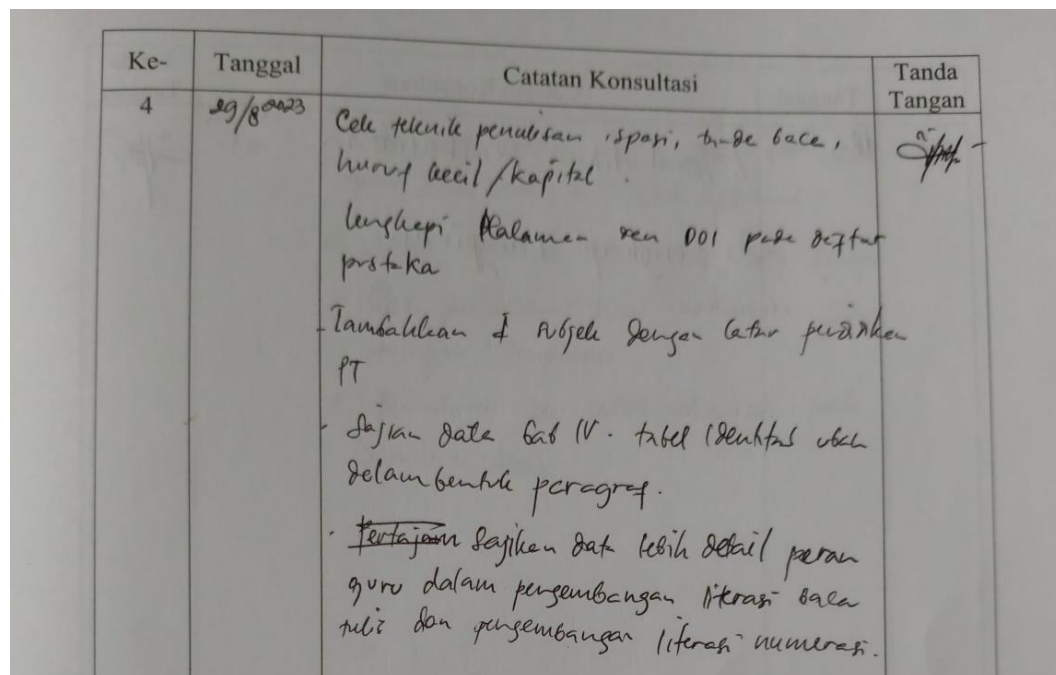 Ke- Tanggal Catatan Konsultasi Tanda Tangan
4 29/8 2023
Cek teknik penulisan, spasi, tanda baca,
huruf kecil/kapital.
lengkapi Halaman dan DOI pada daftar
pustaka
- Tambahkan 1 subjek dengan latar
PT
- Sajian data bab IV. tabel identitas ubah
dalam bentuk paragraf.
- Pertajam Sajikan data lebih detail peran
guru dalam pengembangan literasi baca
tulis dan pengembangan literasi numerasi.